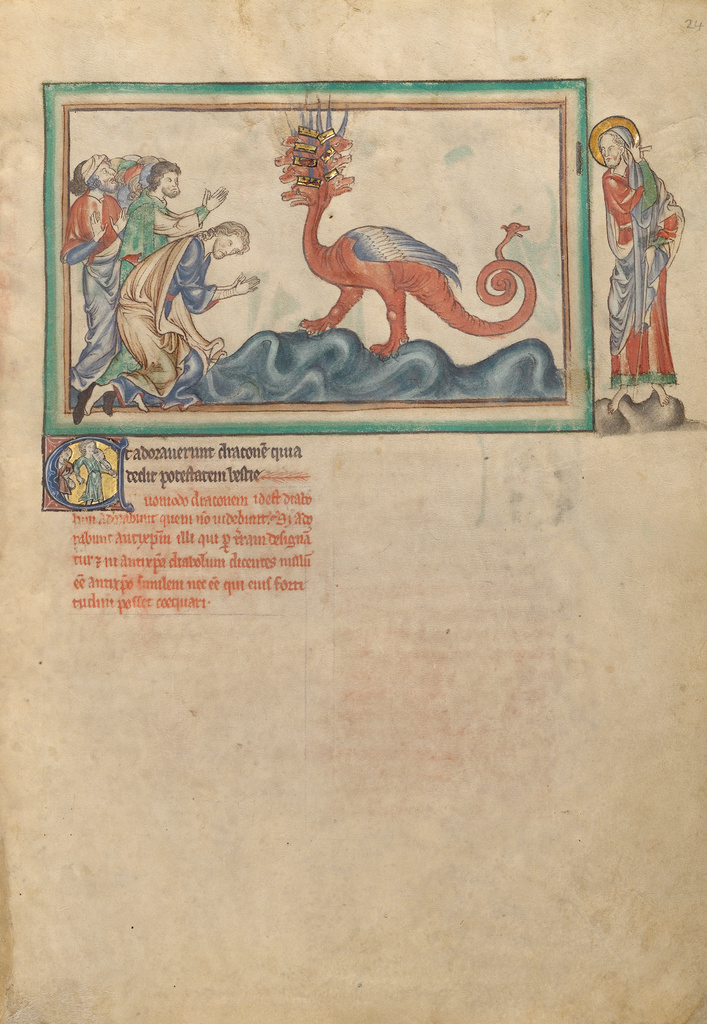 24
Et adorauerunt draconē quia
dedit potestatem bestie
Quomodo draconem id est diabo
lum adorabunt quem nō uidebunt. Si ado
rabunt antixp̄m illi qui ꝑ t̄ram designā
tur ⁊ in antixp̄o diabolum dicentes nullū
eē antixp̄o similem nec eē qui eius forti
tudini posset coequari.